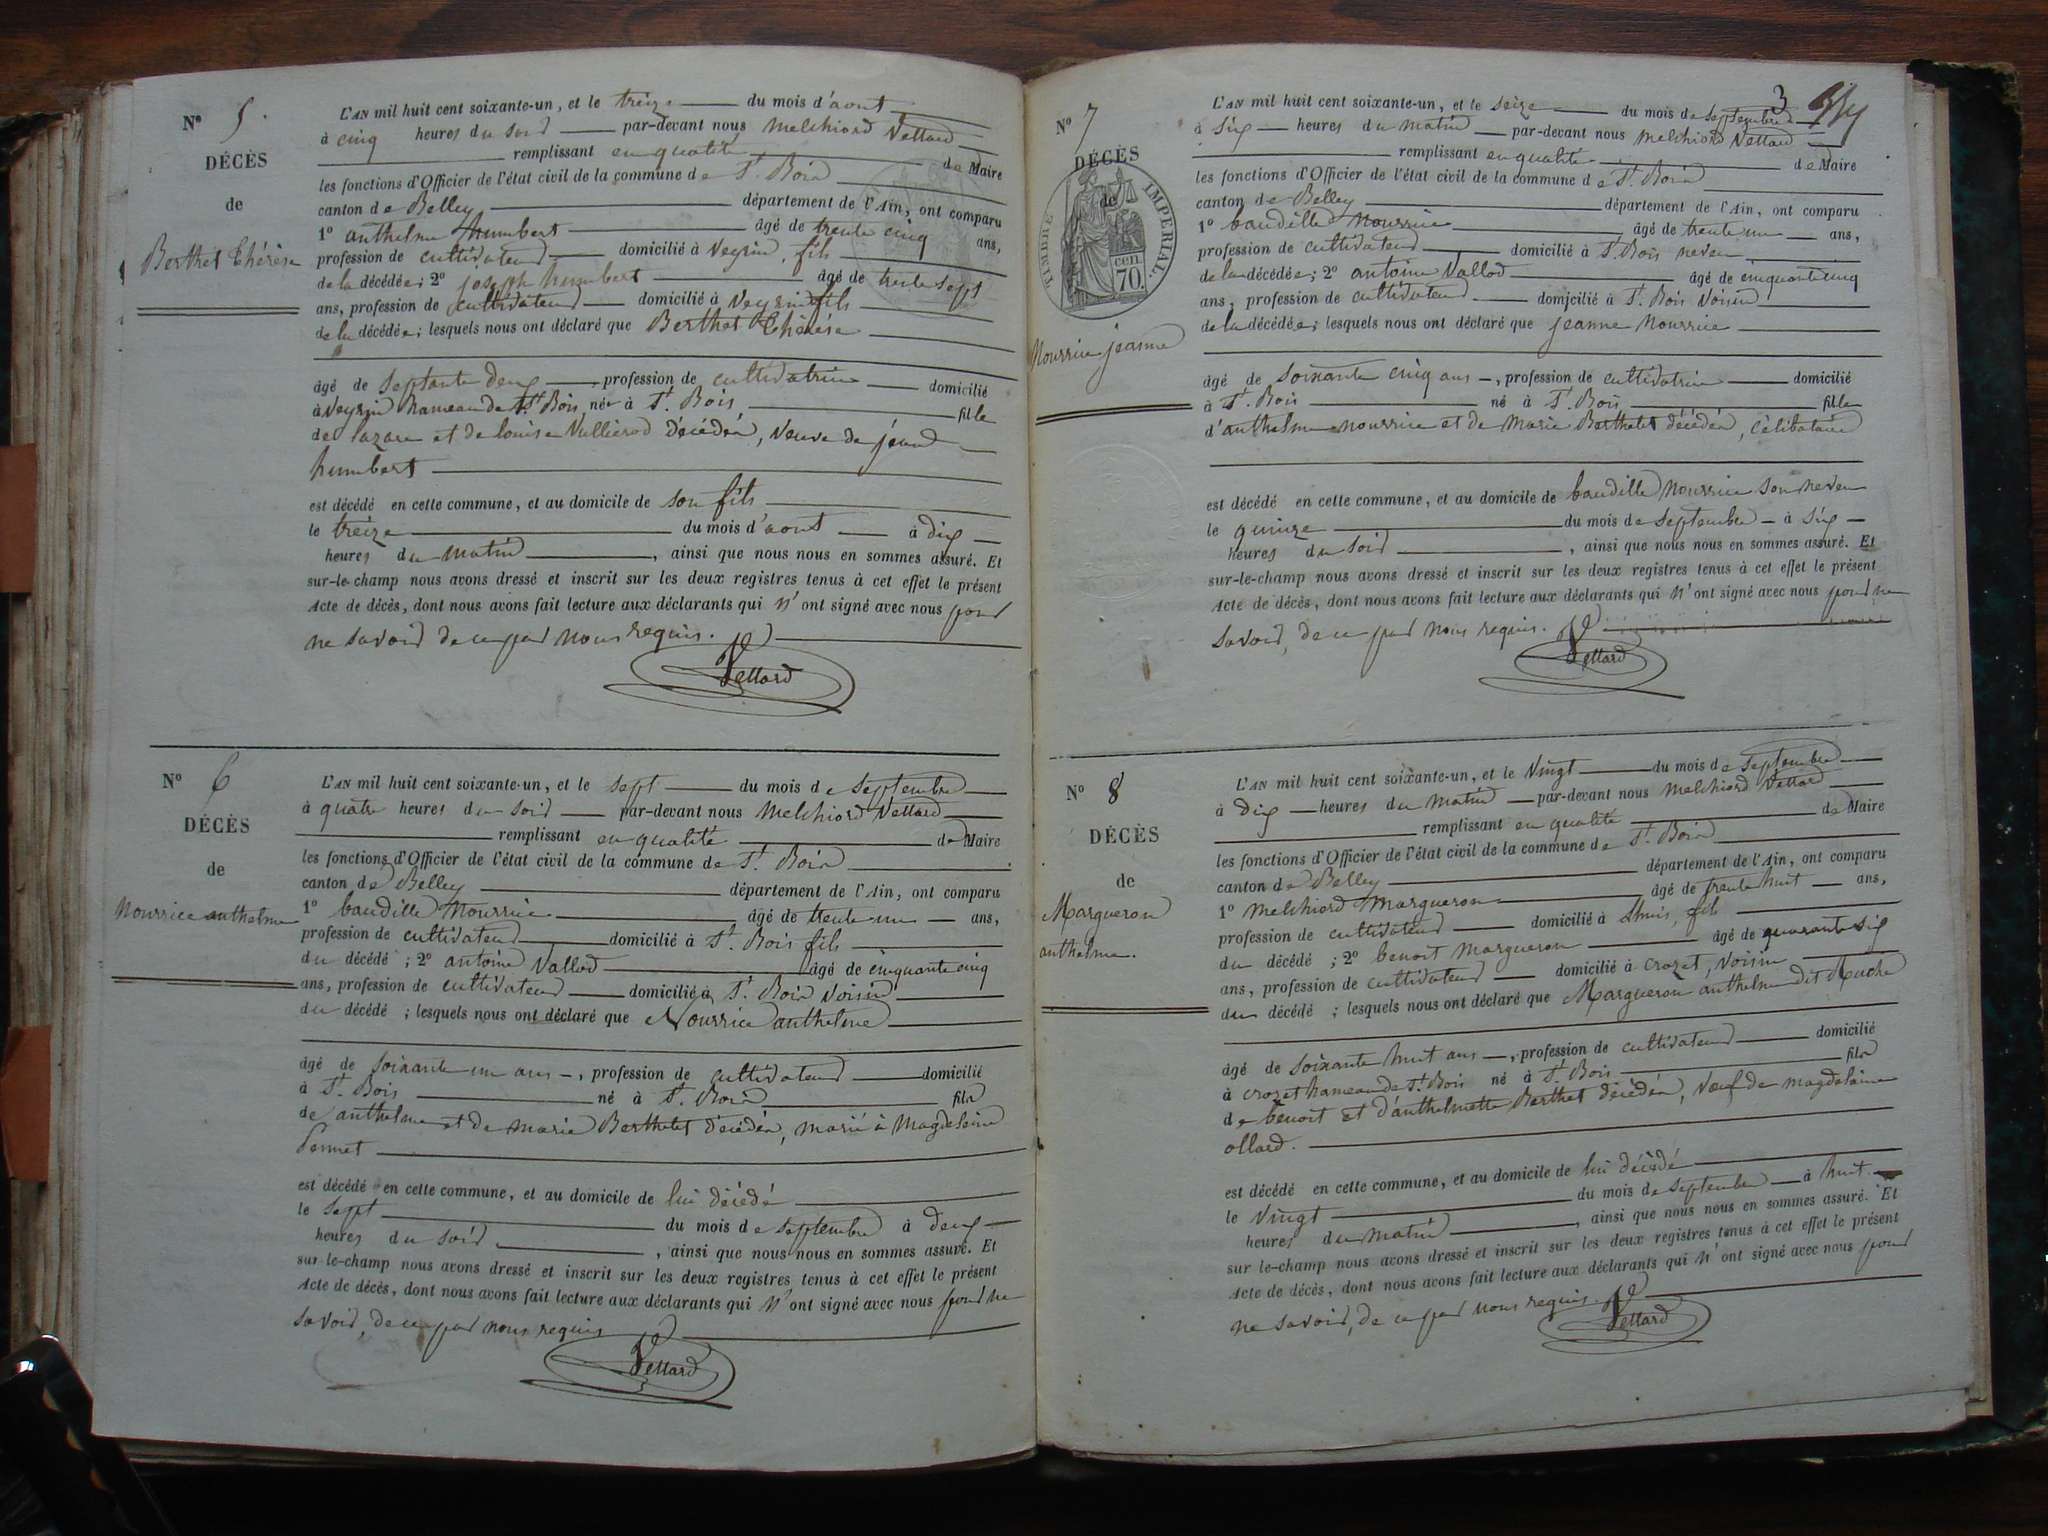 N° 5.
DÉCÈS
de
Berthet Thérèse
L'AN mil huit cent soixante-un, et le treize du mois d'aout
à cinq heures du soir par-devant nous Melchiord Vettard
remplissant en qualité de Maire
les fonctions d'Officier de l'état civil de la commune de St. Bois
canton de Belley département de l'Ain, ont comparu
1° anthelme humbert âgé de trente cinq ans,
profession de cultivateur domicilié à Veyrin, fils
de la décédée; 2° joseph humbert âgé de trente sept
ans, profession de cultivateur domicilié à Veyrin fils
de la décédée; lesquels nous ont déclaré que Berthet Thérèse
âgé de septante deux, profession de cultivatrice domicilié
à Veyrin hameau de St. Bois, née à St. Bois, fille
de lazare et de louise décédés, veuve de jean
humbert
est décédé en cette commune, et au domicile de son fils
le treize du mois d'aout à dix
heures du matin, ainsi que nous nous en sommes assuré. Et
sur-le-champ nous avons dressé et inscrit sur les deux registres tenus à cet effet le présent
Acte de décès, dont nous avons fait lecture aux déclarants qui n'ont signé avec nous pour
ne savoir de ce par nous requis.
Vettard
N° 6
DÉCÈS
de
Nourrice anthelme
L'AN mil huit cent soixante-un, et le sept du mois de septembre
à quatre heures du soir par-devant nous Melchiord Vettard
remplissant en qualité de Maire
les fonctions d'Officier de l'état civil de la commune de St. Bois
canton de Belley département de l'Ain, ont comparu
1° baudille Nourrice âgé de trente un ans,
profession de cultivateur domicilié à St. Bois fils
du décédé; 2° antoine Vallod âgé de cinquante cinq
ans, profession de cultivateur domicilié à St. Bois voisin
du décédé; lesquels nous ont déclaré que Nourrice anthelme
âgé de soixante un ans, profession de cultivateur domicilié
à St. Bois né à St. Bois fils
de anthelme et de marie Berthelet décédés, marié à Magdeleine
Pennet
est décédé en cette commune, et au domicile de lui décédé
le sept du mois de septembre à deux
heures du soir, ainsi que nous nous en sommes assuré. Et
sur-le-champ nous avons dressé et inscrit sur les deux registres tenus à cet effet le présent
Acte de décès, dont nous avons fait lecture aux déclarants qui n'ont signé avec nous pour ne
savoir, de ce par nous requis
Vettard
3
N° 7
DÉCÈS
de
TIMBRE IMPÉRIAL
70. cen
Nourrice jeanne
L'AN mil huit cent soixante-un, et le seize du mois de septembre
à six heures du matin par-devant nous melchiord Vettard
remplissant en qualité de Maire
les fonctions d'Officier de l'état civil de la commune de St. Bois
canton de Belley département de l'Ain, ont comparu
1° baudille Nourrice âgé de trente un ans,
profession de cultivateur domicilié à St. Bois neveu
de la décédée; 2° antoine Vallod âgé de cinquante cinq
ans, profession de cultivateur domicilié à St. Bois voisin
de la décédée; lesquels nous ont déclaré que jeanne Nourrice
âgé de soixante cinq ans, profession de cultivatrice domicilié
à St. Bois né à St. Bois fille
d'anthelme nourrice et de Marie Berthelet décédés, célibataire
est décédé en cette commune, et au domicile de baudille Nourrice son neveu
le quinze du mois de septembre à six
heures du soir, ainsi que nous nous en sommes assuré. Et
sur-le-champ nous avons dressé et inscrit sur les deux registres tenus à cet effet le présent
Acte de décès, dont nous avons fait lecture aux déclarants qui n'ont signé avec nous pour ne
savoir, de ce par nous requis.
Vettard
N° 8
DÉCÈS
de
Margueron
anthelme.
L'AN mil huit cent soixante-un, et le vingt du mois de septembre
à dix heures du matin par-devant nous melchiord Vettard
remplissant en qualité de Maire
les fonctions d'Officier de l'état civil de la commune de St. Bois
canton de Belley département de l'Ain, ont comparu
1° Melchiord Margueron âgé de trente huit ans,
profession de cultivateur domicilié à fils
du décédé; 2° benoit Margueron âgé de quarante six
ans, profession de cultivateur domicilié à crozet, voisin
du décédé; lesquels nous ont déclaré que Margueron anthelme dit
âgé de soixante huit ans, profession de cultivateur domicilié
à crozet hameau de St. Bois né à St. Bois fils
de benoit et d'anthelmette Berthet décédés, veuf de magdelaine
ollard.
est décédé en cette commune, et au domicile de lui décédé
le vingt du mois de septembre à huit
heures du matin, ainsi que nous nous en sommes assuré. Et
sur le-champ nous avons dressé et inscrit sur les deux registres tenus à cet effet le présent
Acte de décès, dont nous avons fait lecture aux déclarants qui n'ont signé avec nous pour
ne savoir, de ce par nous requis.
Vettard